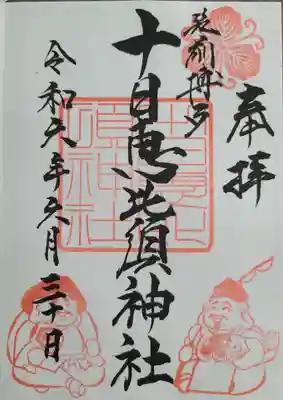 奉拝
筑前博多
十日恵比須神社
令和元年六月三十日